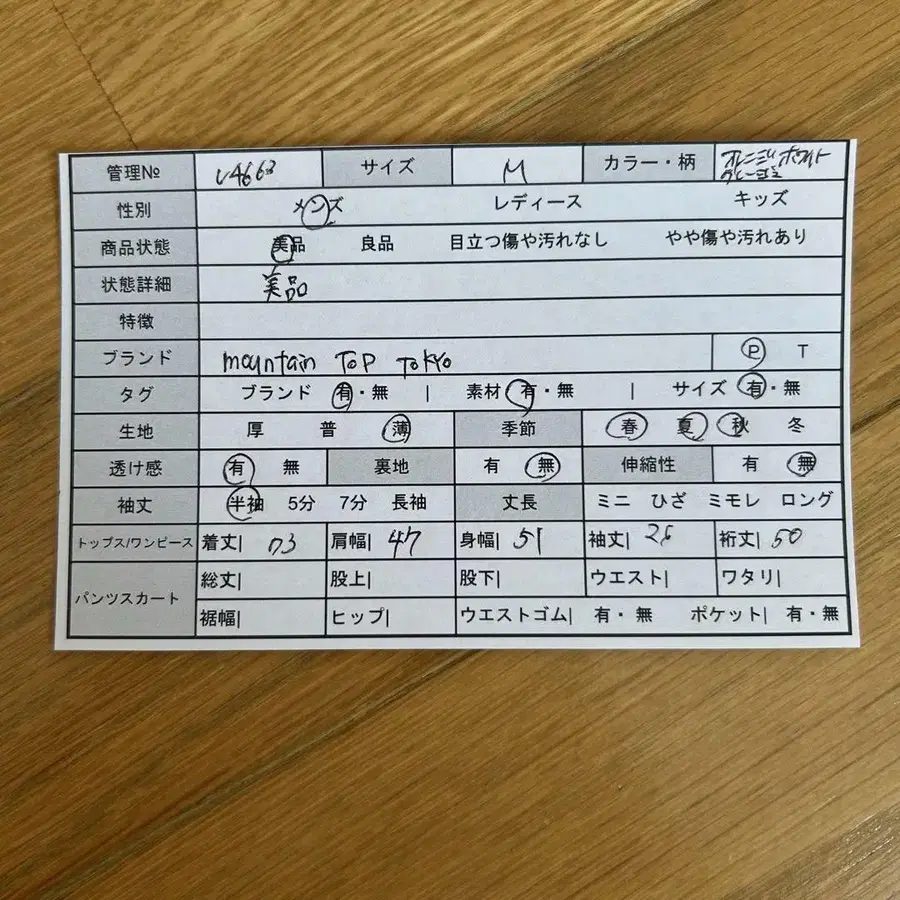 管理№ V4663 サイズ M カラー・柄 オレンジ ホワイト
性別 メンズ レディース キッズ
商品状態 美品 良品 目立つ傷や汚れなし やや傷や汚れあり
状態詳細 美品
特徴
ブランド mountain TOP TOKYO P T
タグ ブランド 有・無 | 素材 有・無 | サイズ 有・無
生地 厚 普 薄 季節 春 夏 秋 冬
透け感 有 無 裏地 有 無 伸縮性 有 無
袖丈 半袖 5分 7分 長袖 丈長 ミニ ひざ ミモレ ロング
トップス/ワンピース 着丈| 73 肩幅| 47 身幅| 51 袖丈| 裄丈| 50
パンツスカート 総丈| 股上| 股下| ウエスト| ワタリ|
裾幅| ヒップ| ウエストゴム| 有・無 ポケット| 有・無